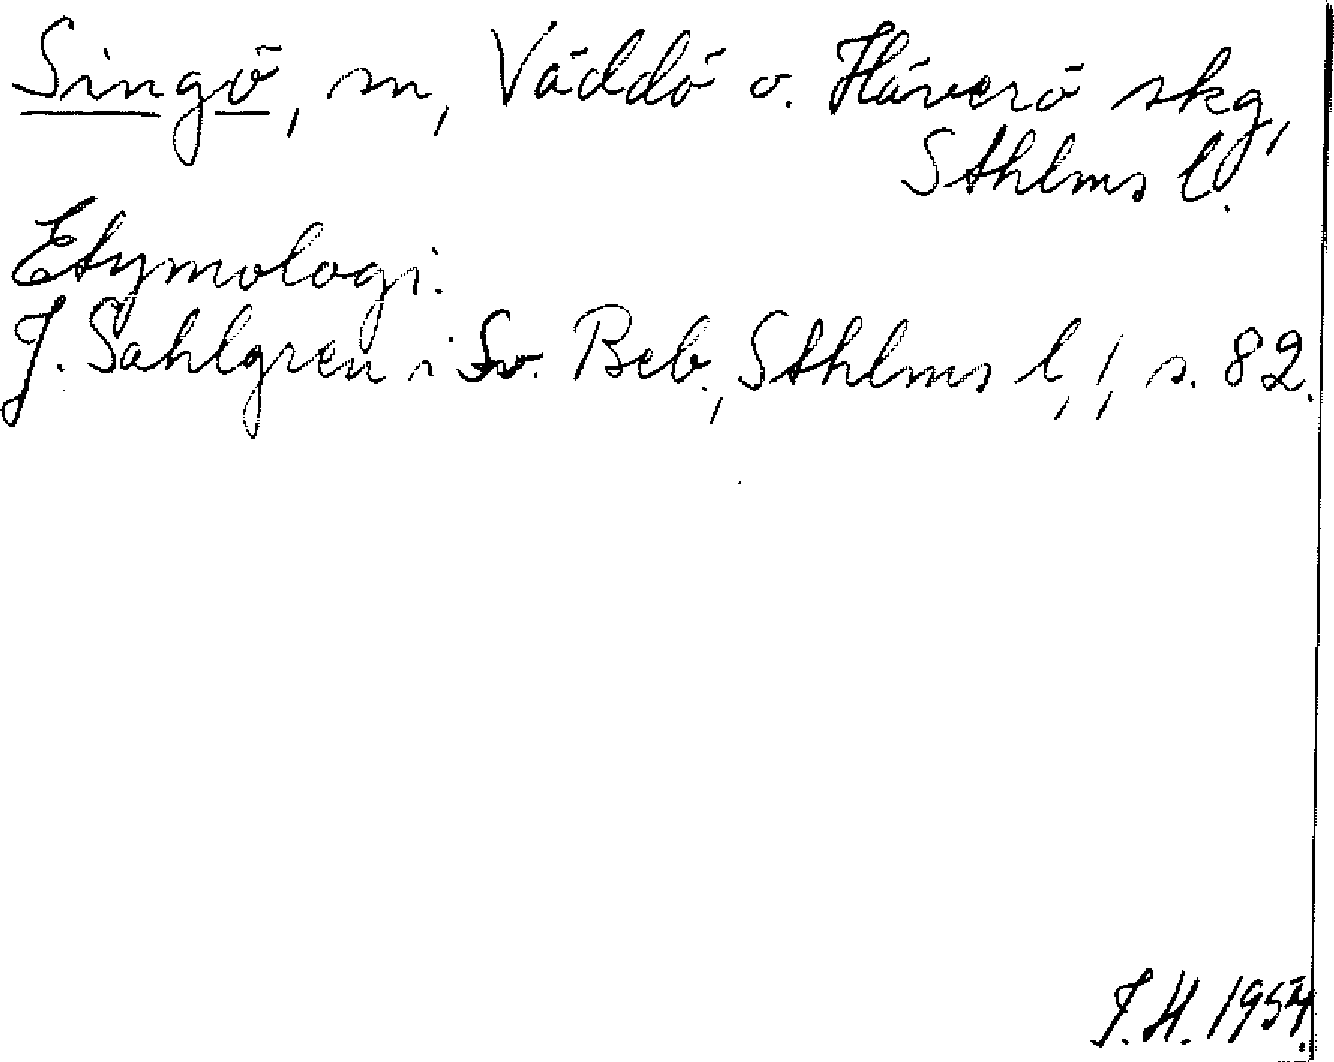 Singö, sn, Väddö o. Häverö skg,
Sthlms l.
Etymologi.
J. Sahlgren i Sv. Beb., Sthlms l, 1, s. 82.
J.H. 1954.